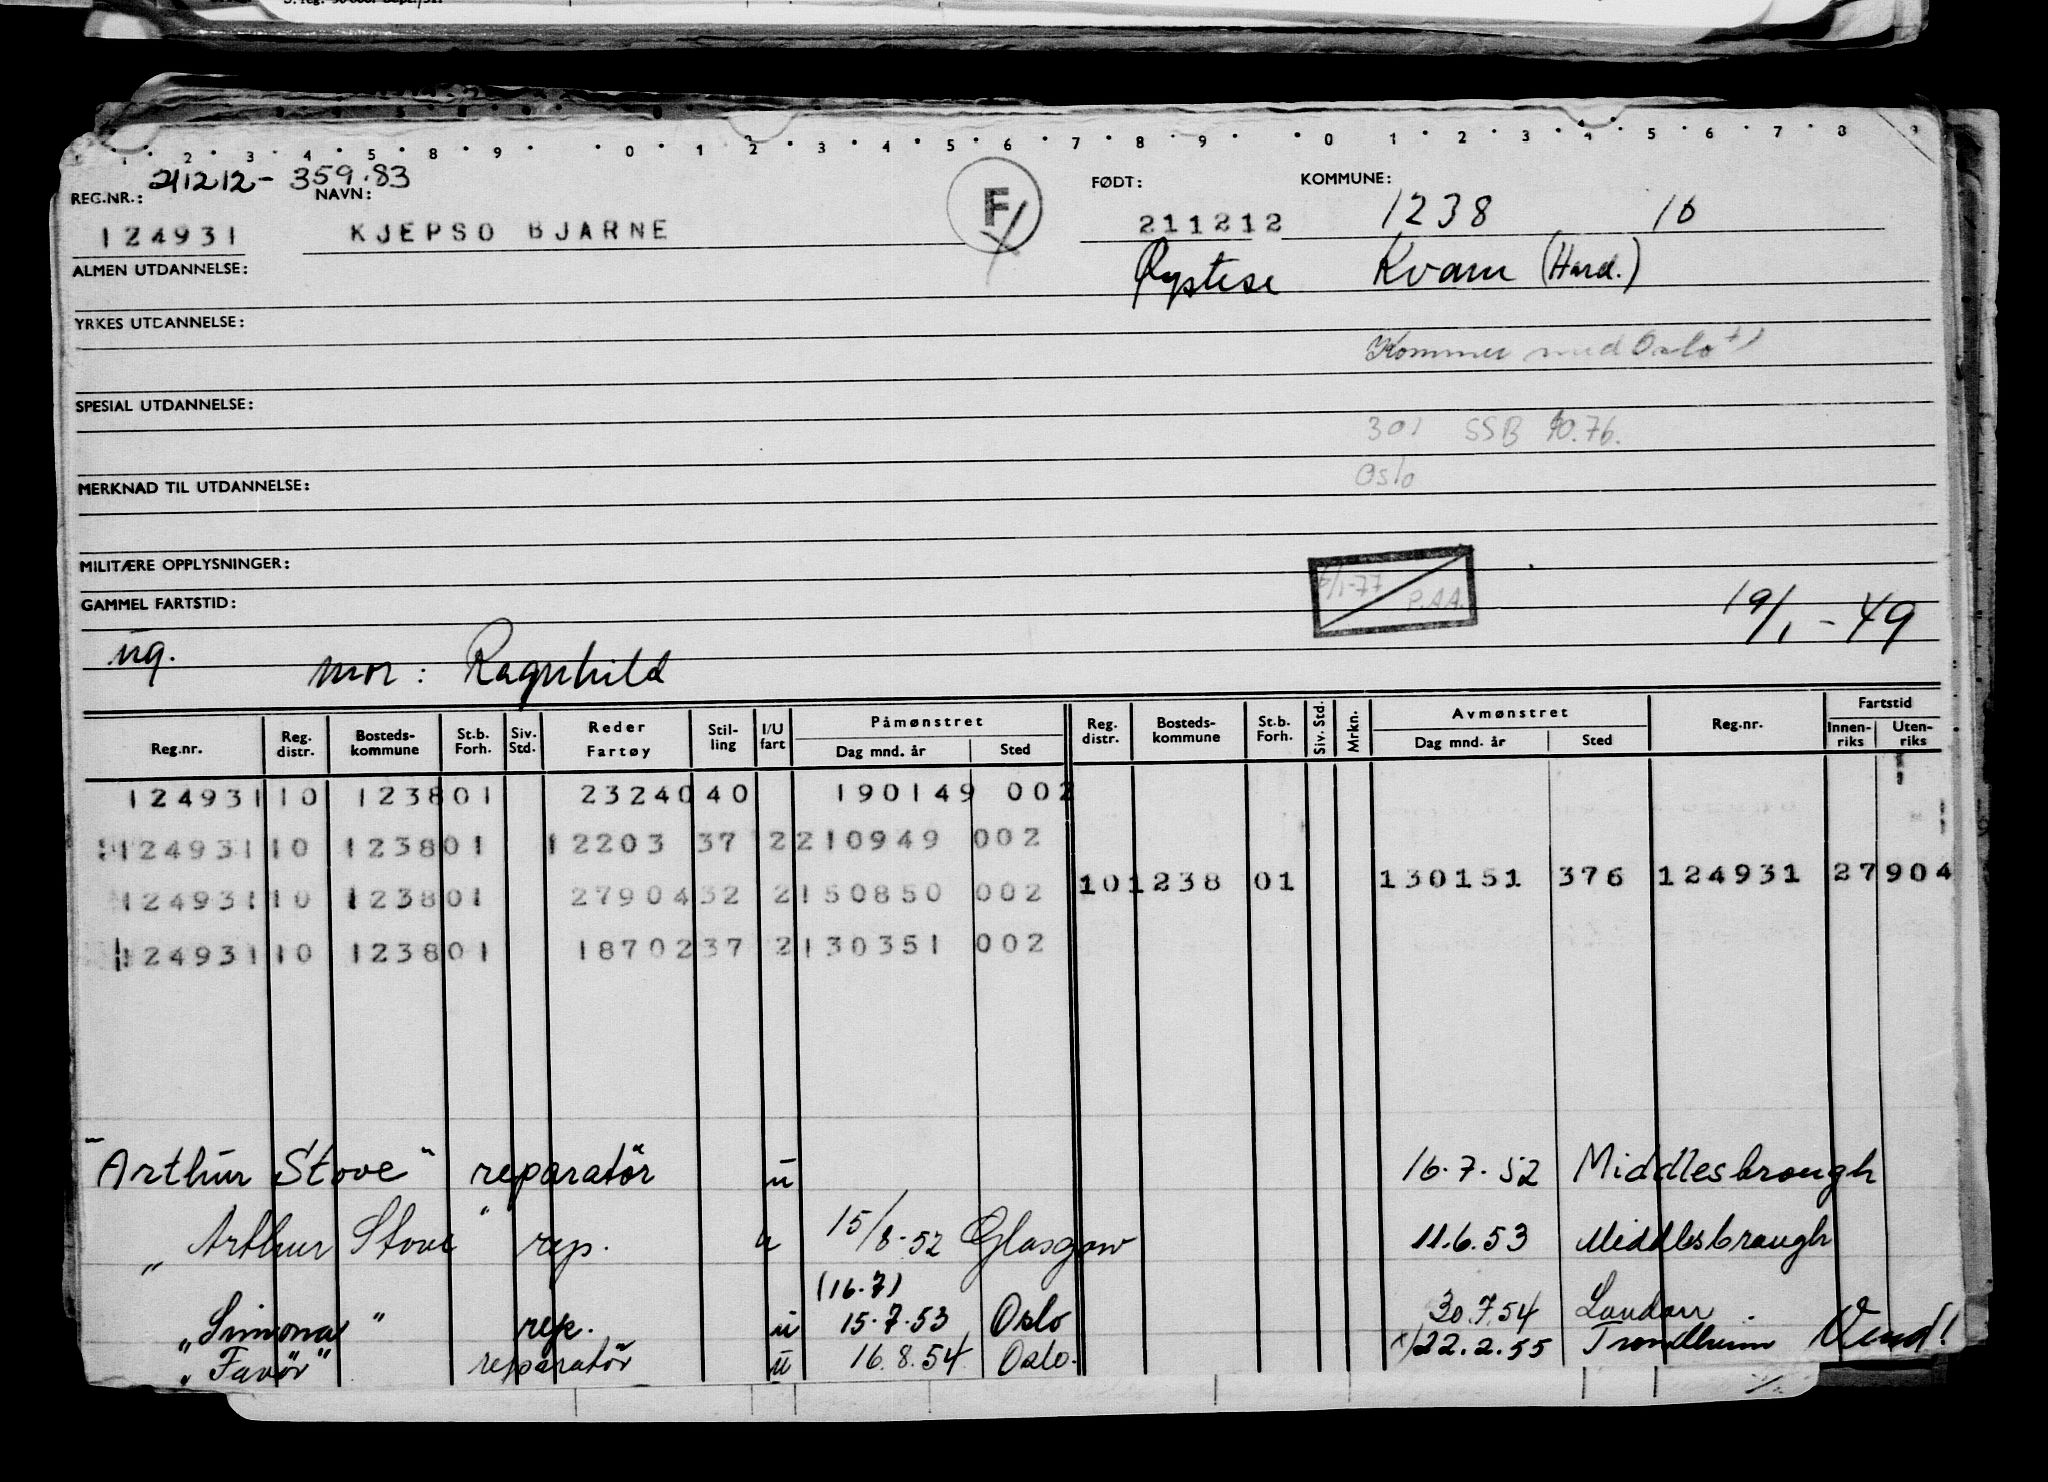 1 2 3 4 5 8 9 0 1 2 3 4 5 6 7 8 9 0 1 2 3 4 5 6 7 8 9
211212-359.83
REG.NR.: NAVN: FØDT: KOMMUNE:
124931 KJEPSO BJARNE F 211212 1238 10
ALMEN UTDANNELSE: Øystese Kvam (Hard.)
YRKES UTDANNELSE:
Kommer med Oslo
SPESIAL UTDANNELSE:
301 SSB 10.76.
Oslo
MERKNAD TIL UTDANNELSE:
MILITÆRE OPPLYSNINGER:
/1-77 P.A.A.
GAMMEL FARTSTID: 19/1-49
ug. mor: Ragnhild
Reg.nr. Reg. distr. Bosteds-kommune St.b. Forh. Siv. Std. Reder Fartøy Stil-ling I/U fart Påmønstret Dag mnd. år Sted Reg. distr. Bosteds-kommune St.b. Forh. Siv. Std. Mrkn. Avmønstret Dag mnd. år Sted Reg.nr. Fartstid Innen-riks Uten-riks
124931 10 1238 01 23240 40 190149 002
124931 10 1238 01 12203 37 2 210949 002
10 1238 01 130151 376 124931 27 904
124931 10 1238 01 27904 32 2 150850 002
124931 10 1238 01 18702 37 2 130351 002
"Arthur Stove" reparatör u 16.7.52 Middlesbrough
"Arthur Stove" rep. u 15/8-52 Glasgow 11.6.53 Middlesbrough
(16.7)
"Simona" rep. u 15.7.53 Oslo 30.7.54 London
"Favör" reparatör u 16.8.54 Oslo. x/22.2.55 Trondheim Vend!